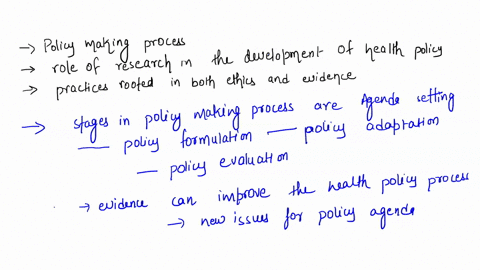 → Policy making process
→ role of research in the development of health policy
→ practices rooted in both ethics and evidence
→ stages in policy making process are Agenda setting
— policy formulation — policy adaptation
— policy evaluation
→ evidence can improve the health policy process
→ new issues for policy agenda